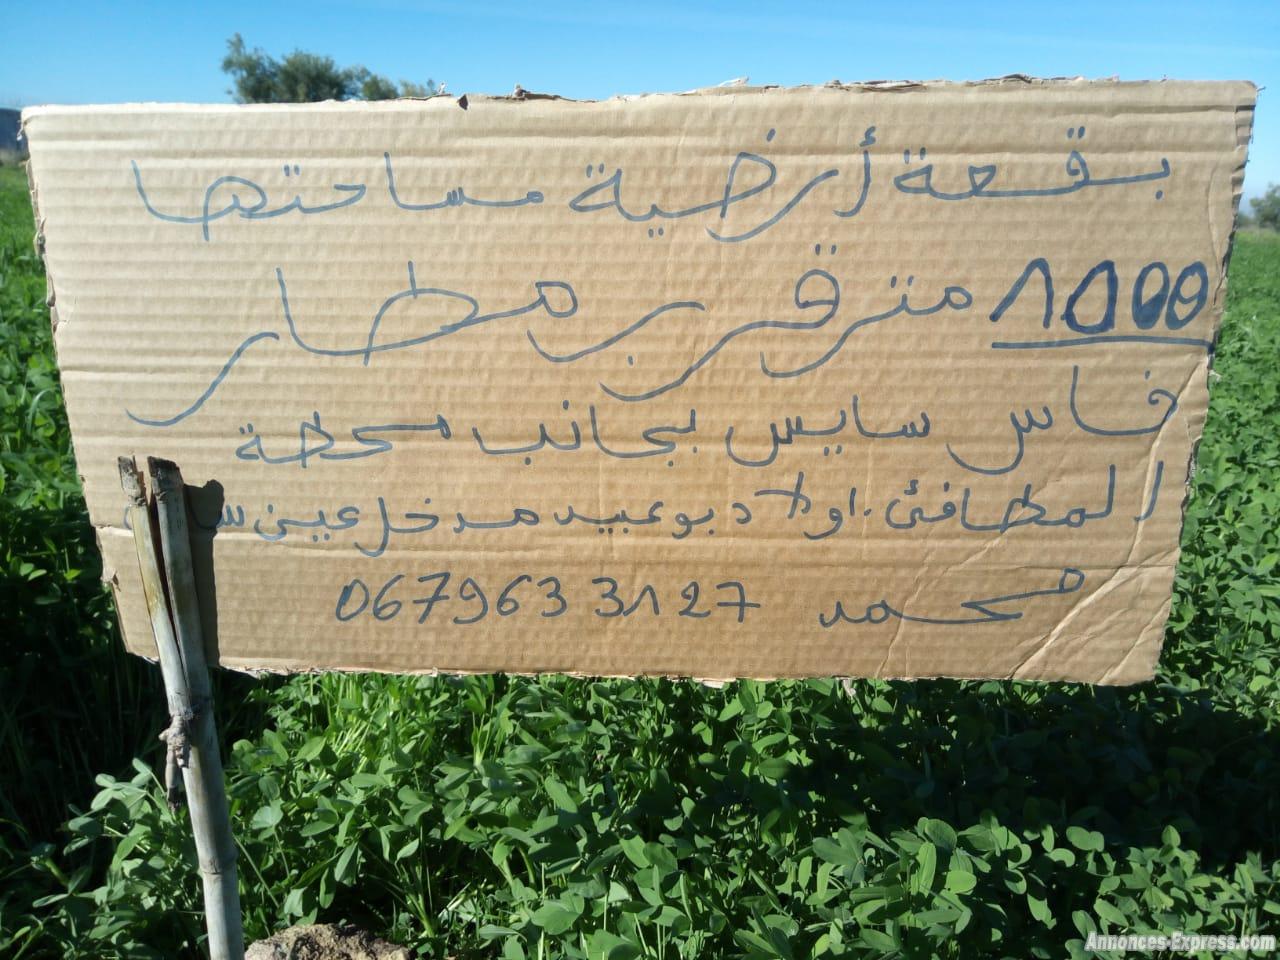 بقعة أرضية مساحتها
1000 متر قرب مطار
فاس سايس بجانب محطة
المطافئ. اولاد بوعبيد مدخل عين
محمد 0679633127
Annonces-Express.com